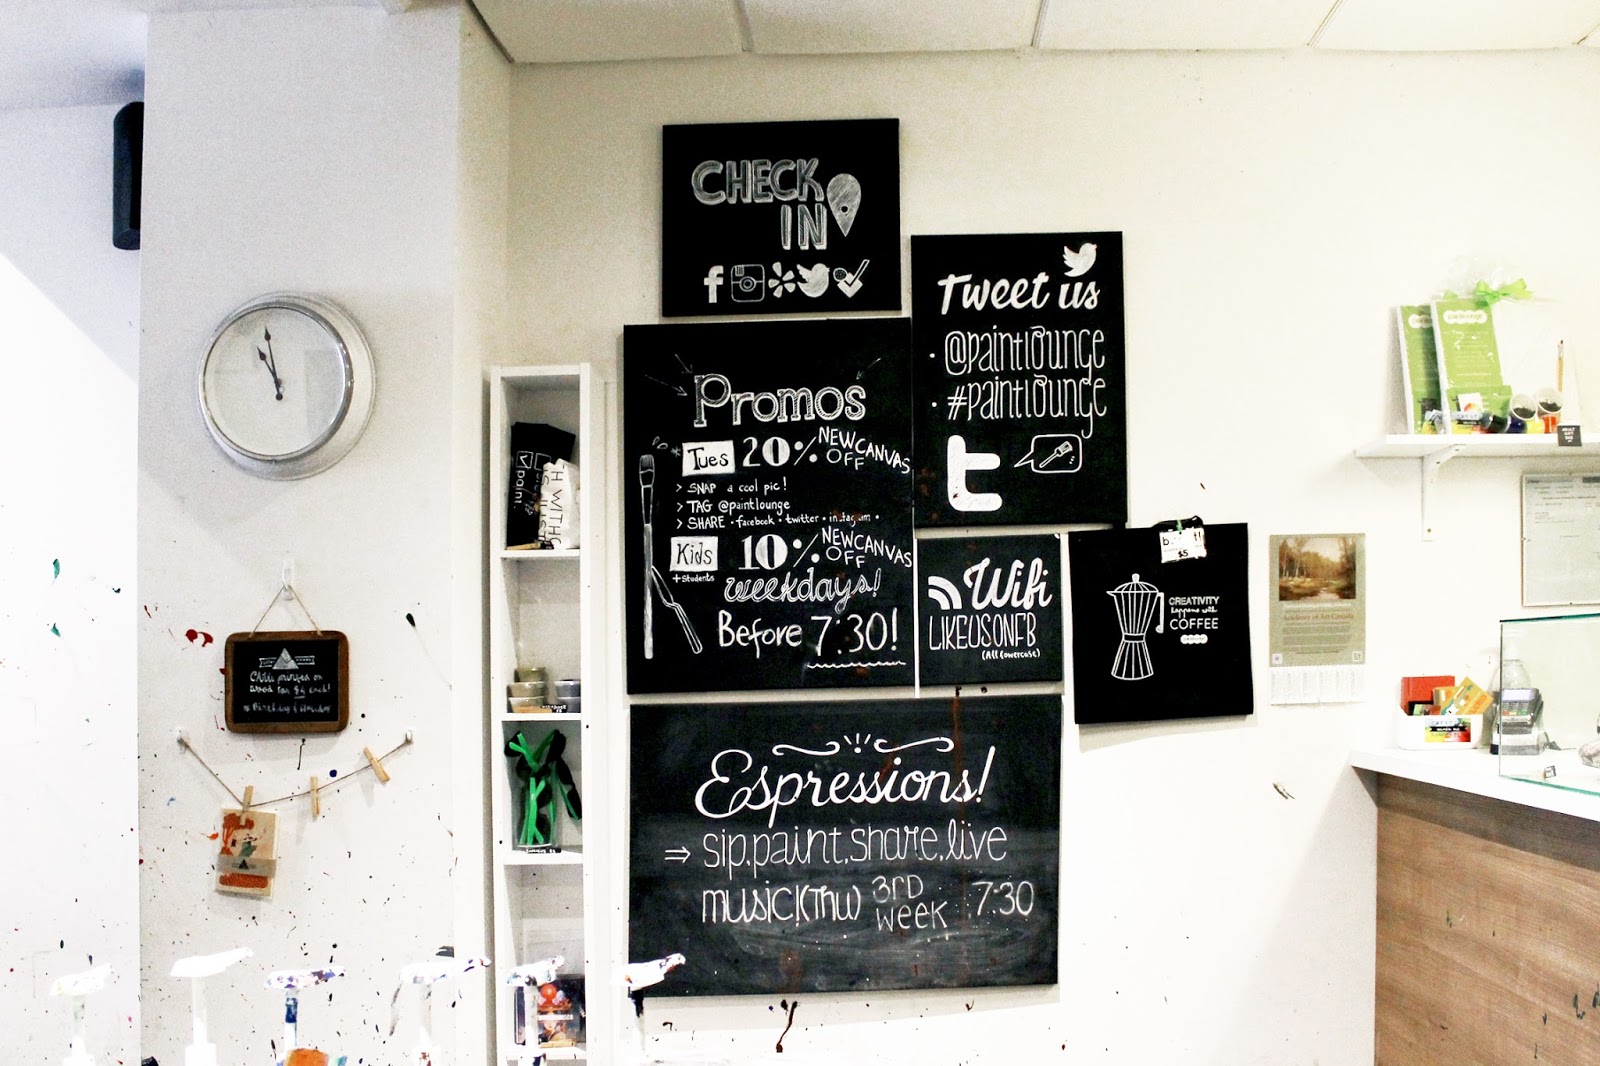 CHECK
IN
Tweet us
@paintlounge
#paintlounge
Promos
Tues 20% NEW CANVAS
OFF
> SNAP a cool pic!
> TAG @paintlounge
> SHARE • facebook • twitter • instagram •
Kids 10% NEW CANVAS
OFF
+ students
weekdays!
Before 7:30!
Wifi
LIKEUSONFB
(All lowercase)
$5
CREATIVITY
happens with
COFFEE
Espressions!
⇒ sip.paint.share.live
music(Thu) 3RD
WEEK 7:30
paint.
paintlounge
Academy of Art Canada